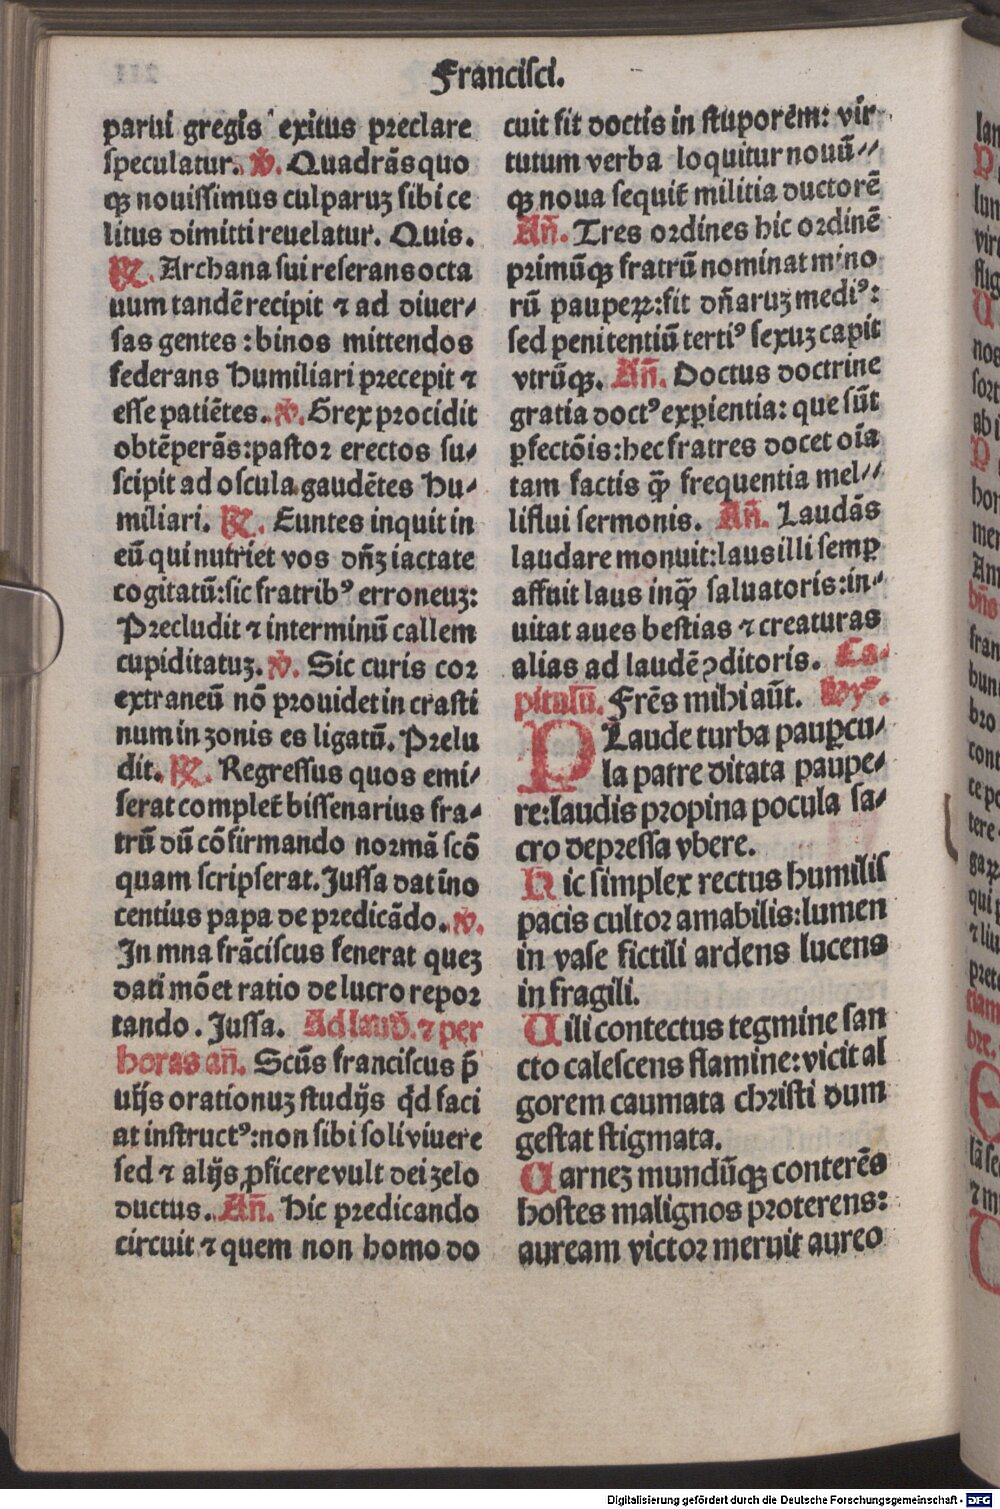 Francisci.
parui gregis exitus preclare
speculatur. ℣. Quadrãs quo
qȝ nouissimus culparuȝ sibi ce
litus dimitti reuelatur. Quis.
℟. Archana sui reserans octa
uum tandẽ recipit ⁊ ad diuer⸗
sas gentes : binos mittendos
federans humiliari precepit ⁊
esse patiẽtes. ℣. Grex procidit
obtẽperãs:pastor erectos su⸗
scipit ad oscula gaudẽtes hu⸗
miliari. ℟. Euntes inquit in
eũ qui nutriet vos dñȝ iactate
cogitatũ:sic fratribꝰ erroneuȝ:
Precludit ⁊ interminũ callem
cupiditatuȝ. ℣. Sic curis cor
extraneũ nõ prouidet in crasti
num in zonis es ligatũ. Prelu
dit. ℟. Regressus quos emi⸗
serat complet̃ bissenarius fra⸗
trũ dũ cõfirmando normã scõ
quam scripserat. Jussa dat ino
centius papa de predicãdo. ℣.
In mna frãciscus fenerat queȝ
dati mõet ratio de lucro repor
tando . Jussa. Ad laud̃. ⁊ per
horas añ. Scũs franciscus p̃
uijs orationuȝ studijs qd̃ faci
at instructꝰ:non sibi soli viuere
sed ⁊ alijs ꝓficere vult dei zelo
ductus. Añ. Hic predicando
circuit ⁊ quem non homo do
cuit fit doctis in stuporem: vir
tutum verba loquitur nouũ⸗
qȝ noua sequit̃ militia ductorẽ
Añ. Tres ordines hic ordinẽ
primũqȝ fratrũ nominat mino
rũ pauperꝝ:fit dñaruȝ mediꝰ:
sed penitentiũ tertiꝰ sexuȝ capit
vtrũqȝ. Añ. Doctus doctrine
gratia doctꝰ exꝑientia: que sũt
ꝑfectõis:hec fratres docet oĩa
tam factis qȝ̃ frequentia mel⸗
liflui sermonis. Añ. Laudãs
laudare monuit:laus illi semꝑ
affuit laus inqȝ̃ saluatoris:in⸗
uitat aues bestias ⁊ creaturas
alias ad laudẽ ꝯditoris. Ca⸗
pitulũ. Frẽs mihi aũt. Ym̃.
PLaude turba pauꝑcu⸗
la patre ditata paupe⸗
re:laudis propina pocula sa⸗
cro depressa vbere.
Hic simplex rectus humilis
pacis cultor amabilis:lumen
in vase fictili ardens lucens
in fragili.
Uili contectus tegmine san
cto calescens flamine:vicit al
gorem caumata christi dum
gestat stigmata.
Carneȝ mundũqȝ conterẽs
hostes malignos proterens:
auream victor meruit aureo
Digitalisierung gefördert durch die Deutsche Forschungsgemeinschaft - DFG